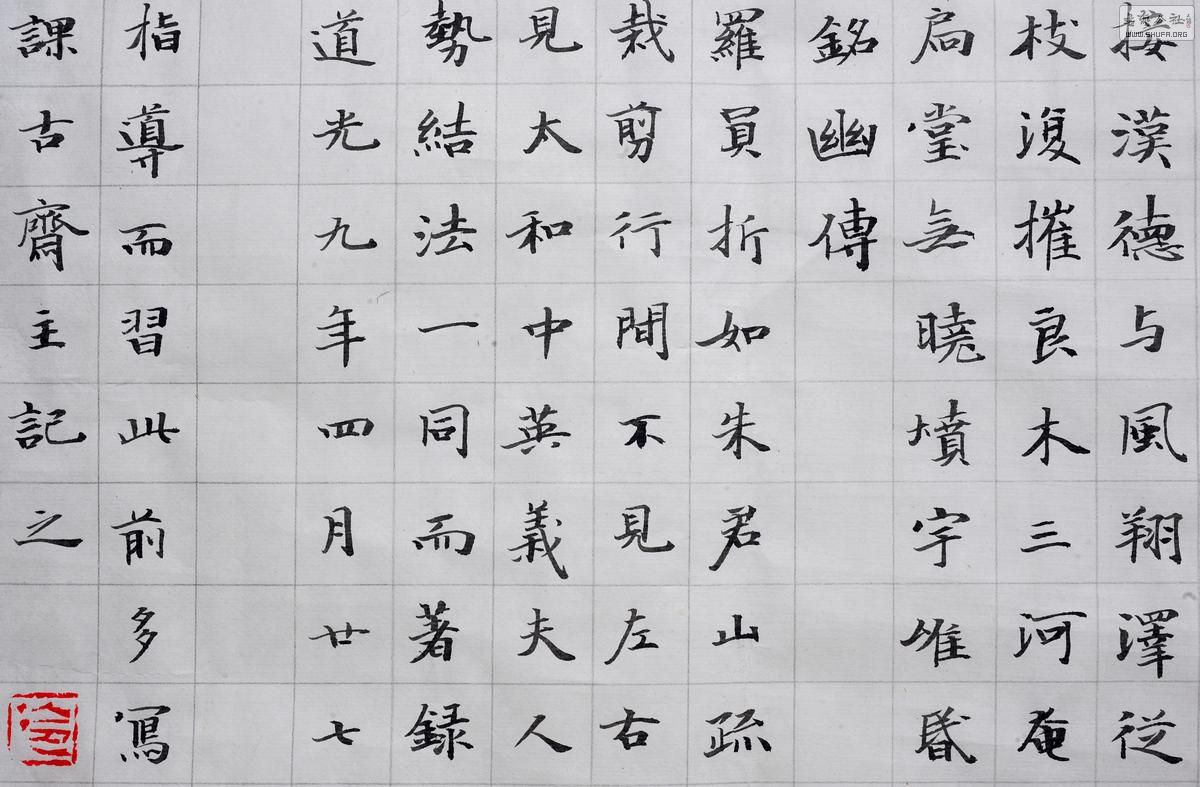 接漢德与風翔澤從
枝復摧良木三河奄
扃堂無曉墳宇唯昏
銘幽傳
羅員折如朱君山疏
栽剪行間不見左右
見太和中英義夫人
勢結法一同而著録
道光九年四月廿七
指導而習此前多寫
課古齋主記之
WWW.SHUFA.ORG